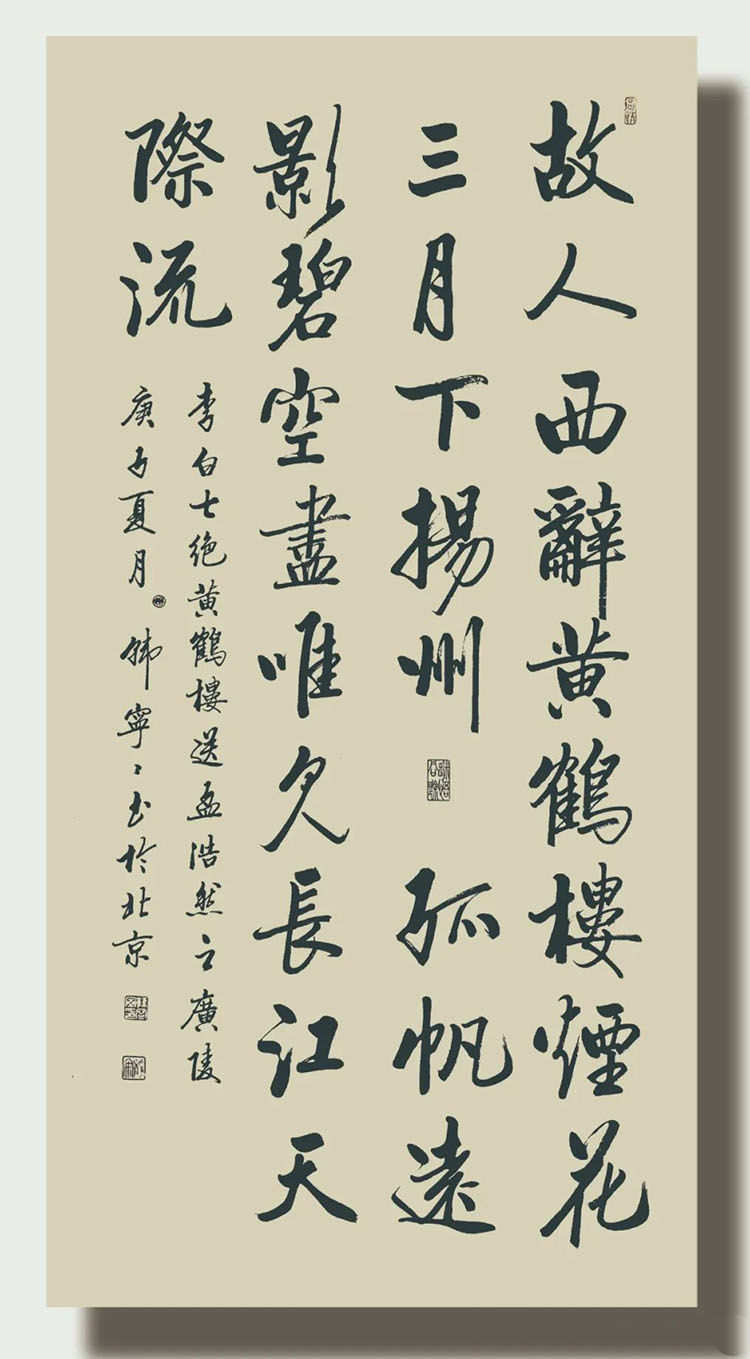 故人西辭黄鶴樓煙花
三月下揚州孤帆遠
影碧空盡唯見長江天
際流
李白七绝黄鶴樓送孟浩然之廣陵
庚子夏月韩寧寧书於北京